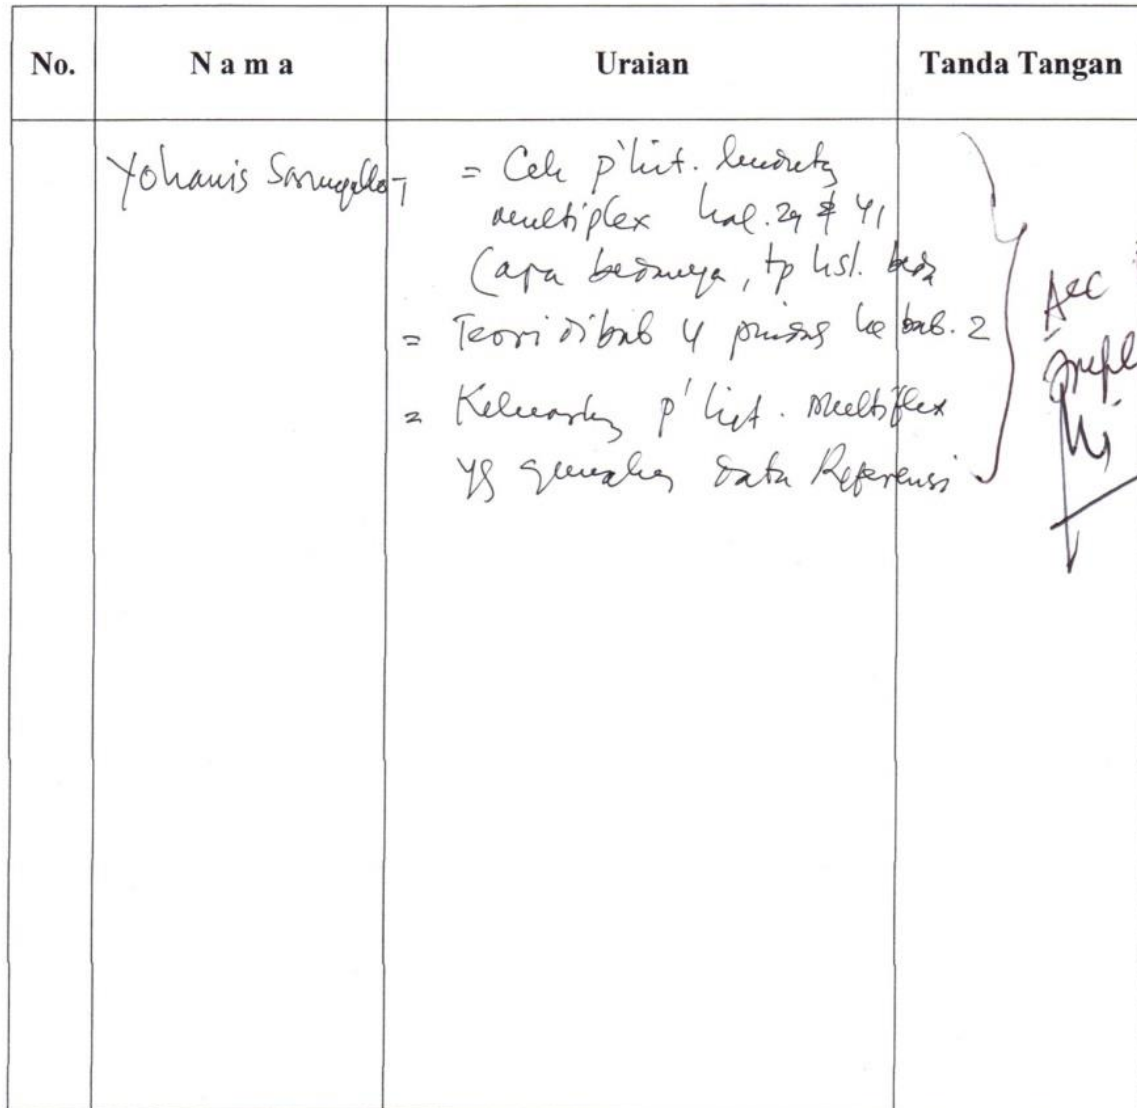 No. N a m a Uraian Tanda Tangan
Yohanis Sarungallo T
= Cek p'hit.
multiplex hal. 29 & 41
(apa bedanya, tp hsl. beda
= Teori dibab 4 pindah ke bab. 2
= Keluarkan p'hit. Multiflex
yg gunakan data Referensi
Acc